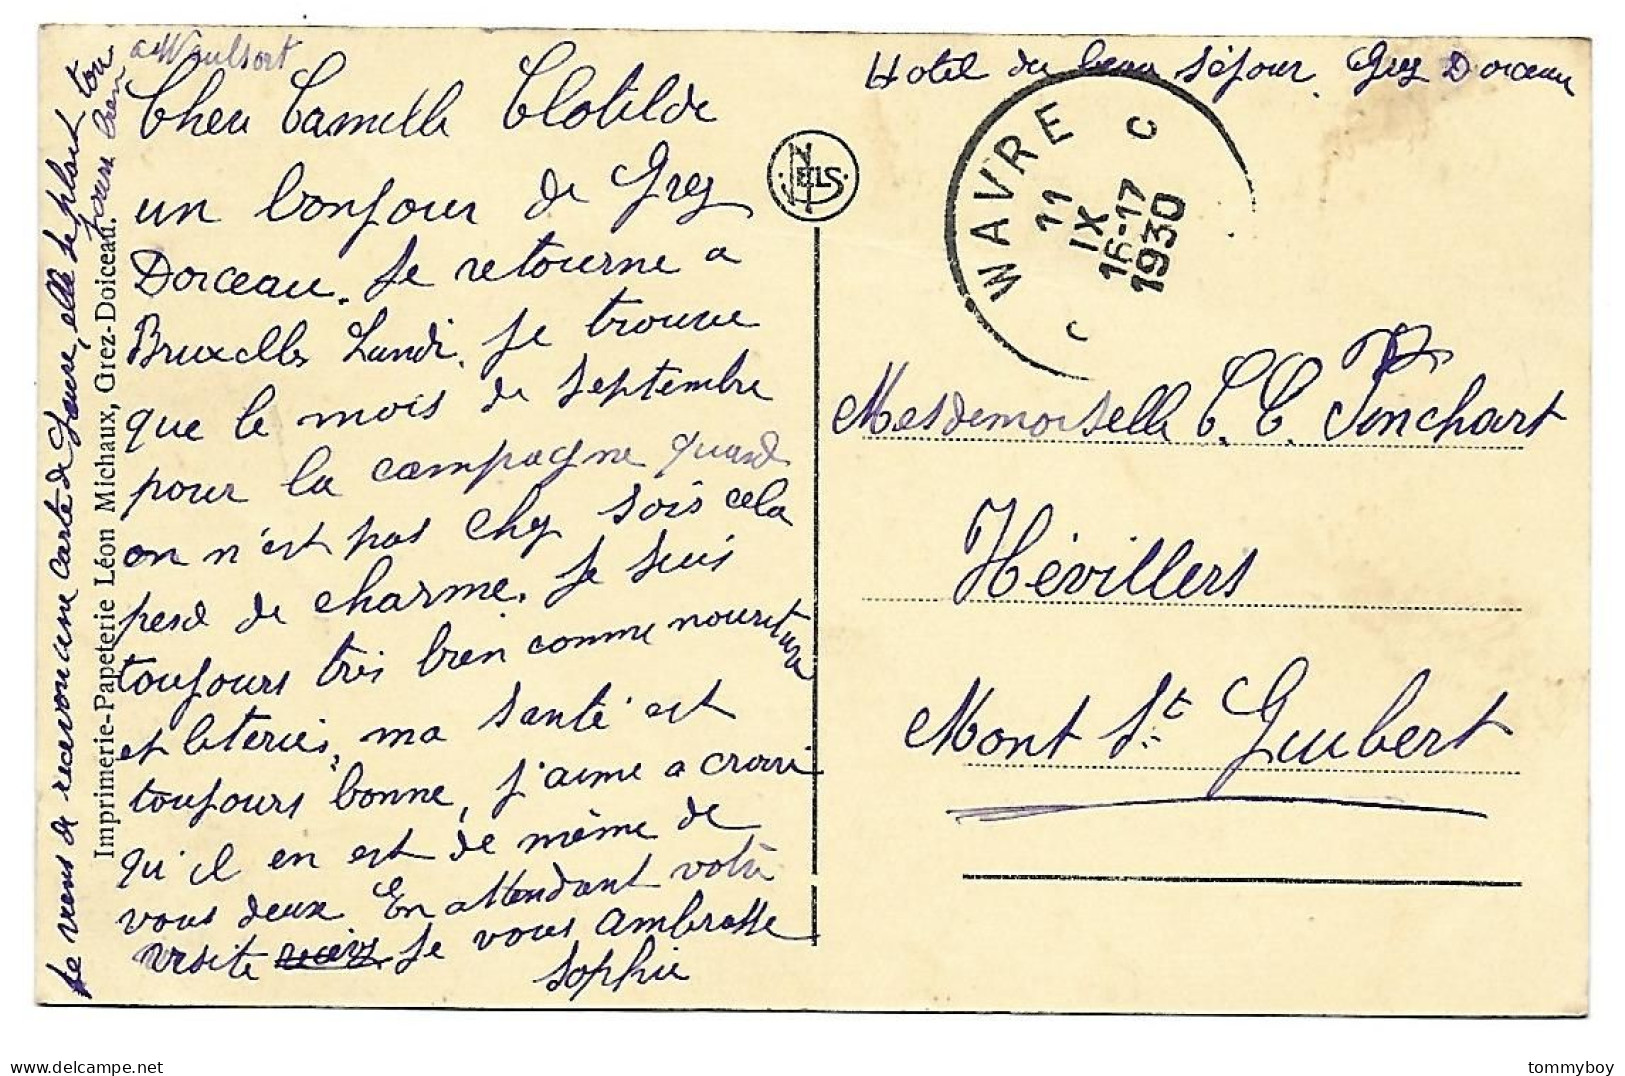 Hotel du beau Séjour. Grez Doiceau
Chère Camille Clotilde
un bonjour de Grez
Doiceau. Je retourne a
Bruxelles Lundi. Je trouve
que le mois de Septembre
pour la campagne quand
on n'est pas chez sois cela
perd de charme. Je suis
toujours très bien comme nourriture
et literies, ma santé est
toujours bonne, j'aime a croire
qu'il en est de même de
vous deux. En attendant votre
visite je vous ambrasse
Sophie
Je viens de recevoir une carte de Louise, elle se plait tou
jours bien
a Waulsort
Imprimerie-Papeterie Léon Michaux, Grez-Doiceau.
NELS
WAVRE
C C
11
IX
16-17
1930
Mesdemoiselle C. C. Pinchart
Hévillers
Mont St Guibert
delcampe.net
tommyboy